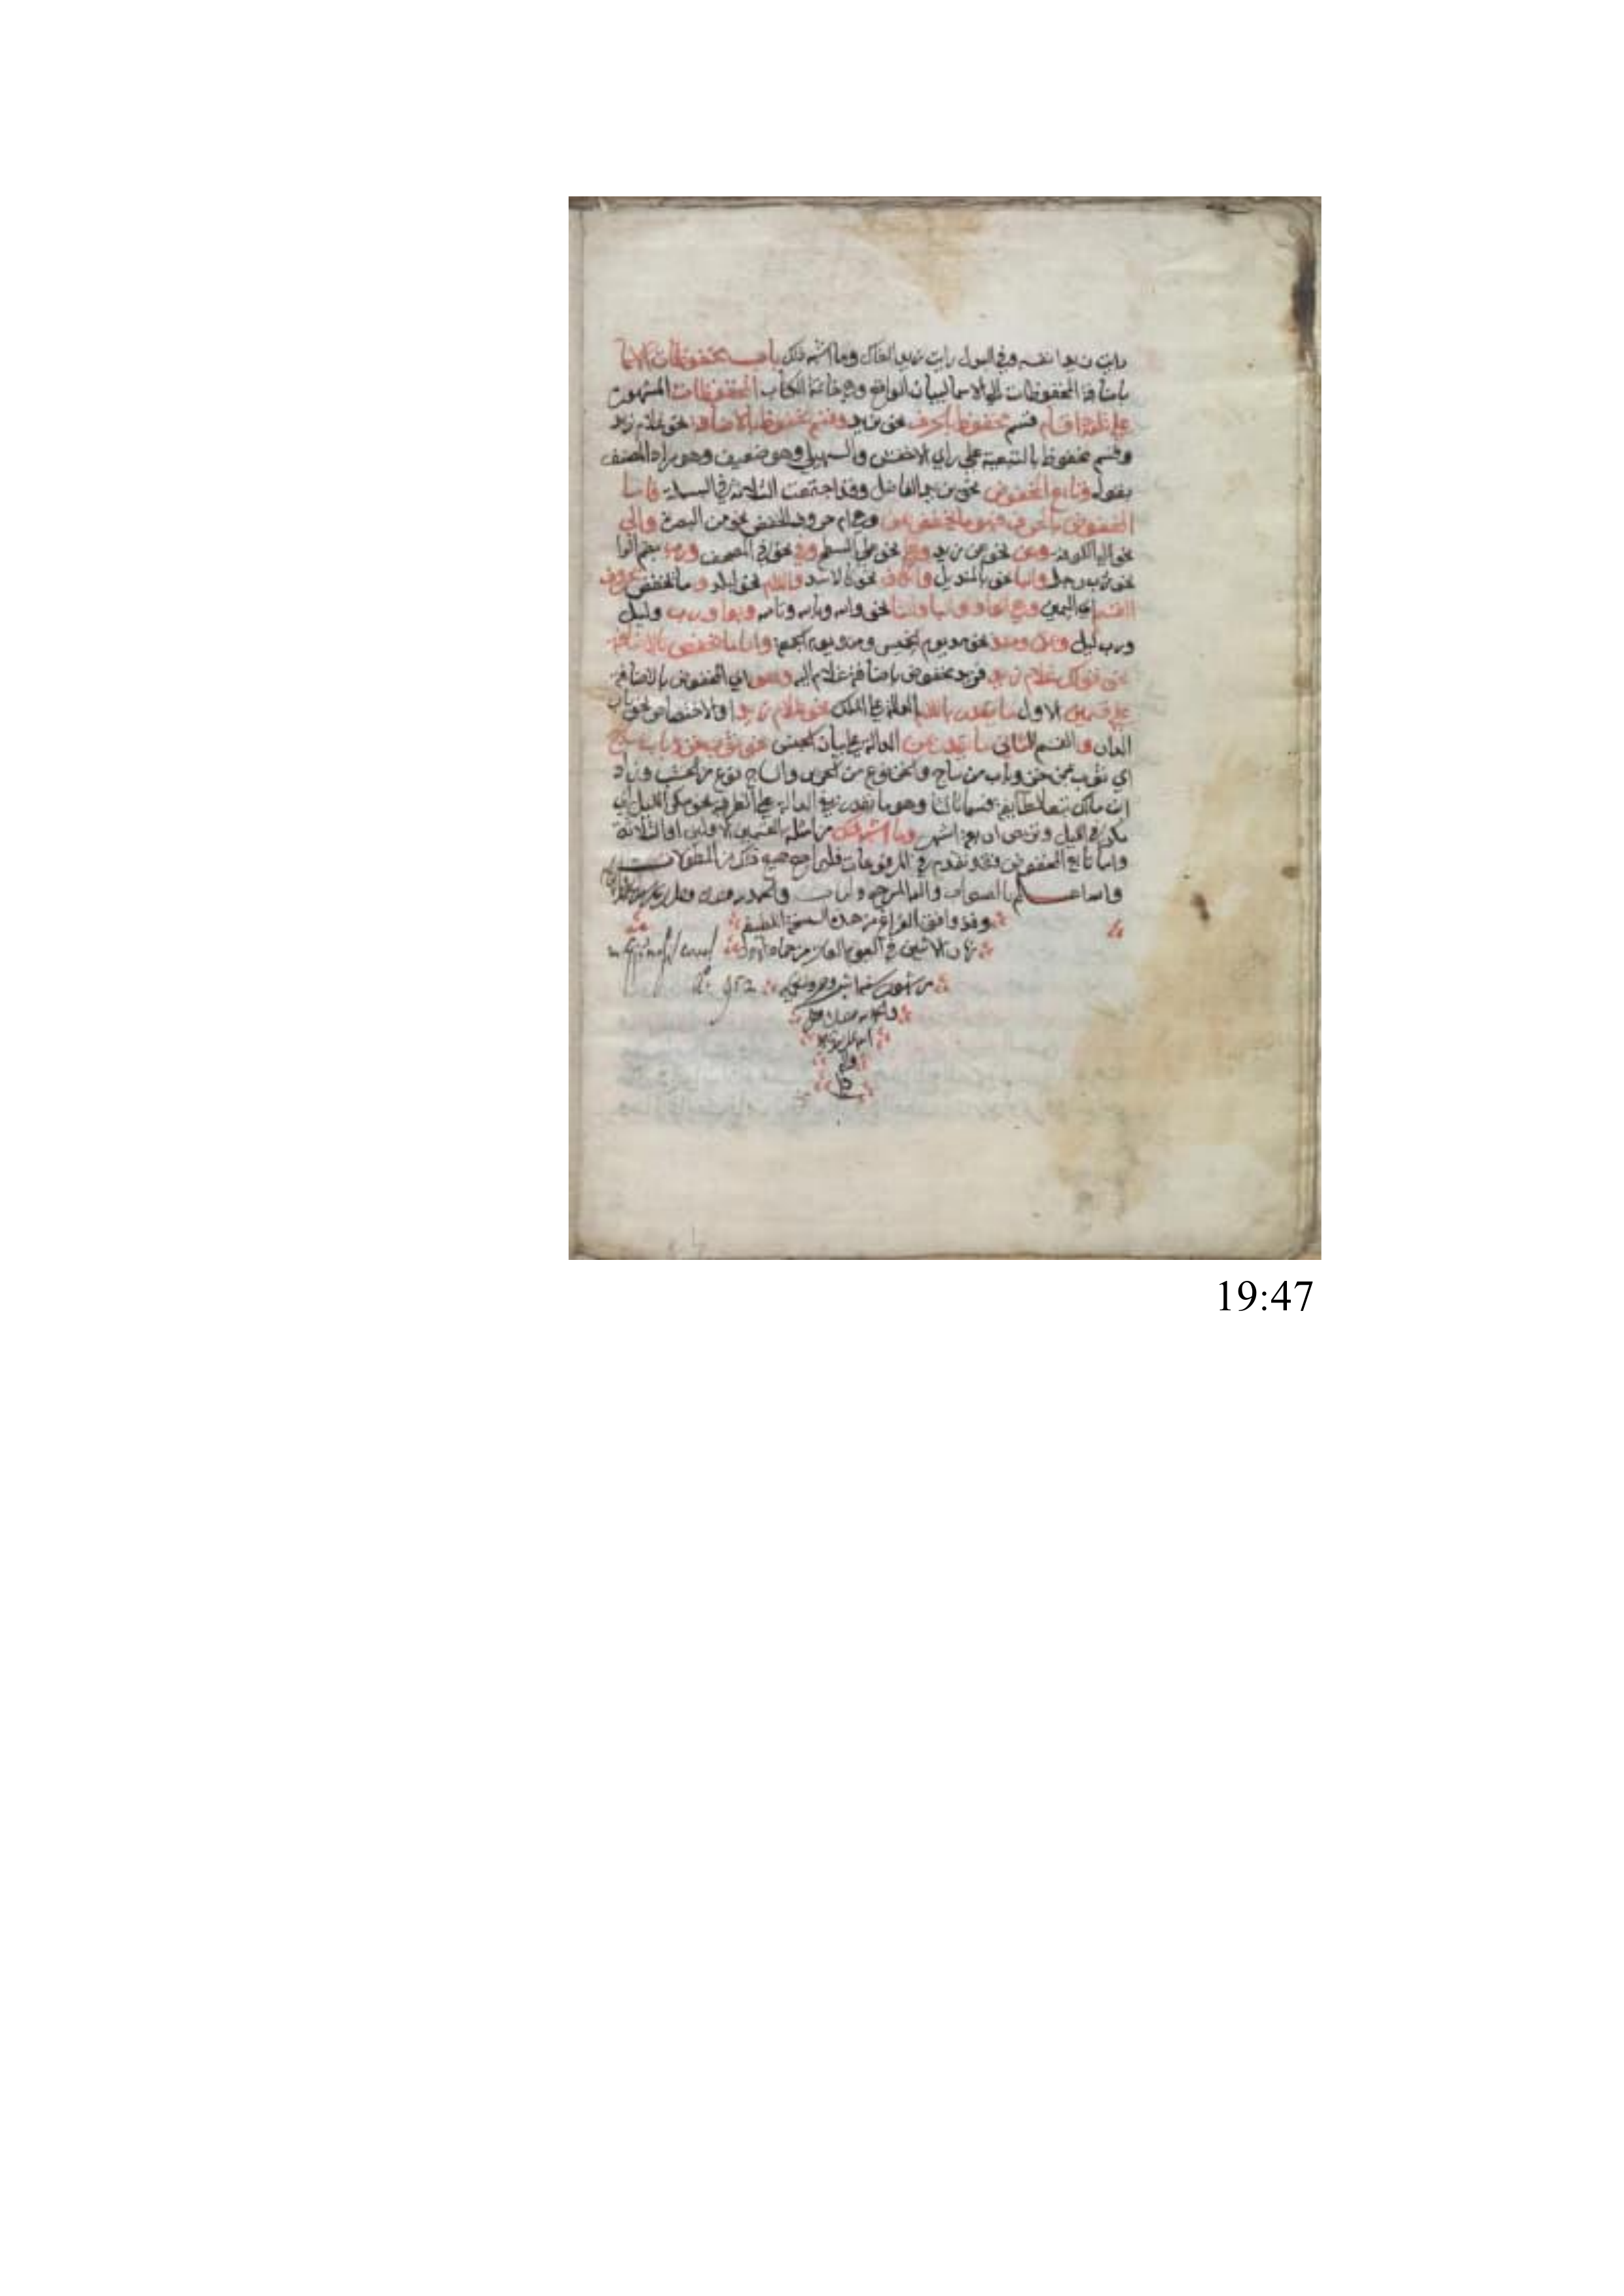 رايت زيدا نفسه وفي البدل رايت زيدا اخاك وما اشبه ذلك باب مخفوضات الاسما
باضافة المخفوضات الى الاسما لبيان الواقع وهي خاتمة الكتاب المخفوضات المشهورة
على ثلاثة اقسام قسم مخفوض بالحرف نحو بزيد وقسم مخفوض بالاضافة نحو غلام زيد
وقسم مخفوض بالتبعية على راي الاخفش والسهيلي وهو ضعيف وهو مراد المصنف
بقوله وتابع المخفوض نحو بزيد الفاضل وقد اجتمعت الثلاثة في البسملة فاما
المخفوض بالحرف فهو ما يخفض بمن وهي ام حروف الخفض نحو من البصرة والى
نحو الى الكوفة وعن نحو عن زيد وعلى نحو على السطح وفي نحو في المصحف ورب بضم الرا
نحو رب رجل والبا نحو بالمنديل والكاف نحو كالاسد واللام نحو لزيد وما يخفض بحروف
القسم اي اليمين وهي الواو والبا والتا نحو والله وبالله وتالله وبواو رب وليل
ورب ليل وبمذ ومنذ نحو مذ يوم الخميس ومنذ يوم الجمعة واما ما يخفض بالاضافة
نحو قولك غلام زيد فزيد مخفوض باضافة غلام اليه وهو اي المخفوض بالاضافة
على قسمين الاول ما يقدر باللام الدالة على الملك نحو غلام زيد او الاختصاص نحو باب
الدار والقسم الثاني ما يقدر بمن الدالة على بيان الجنس نحو ثوب خز وباب ساج
اي ثوب من خز وباب من ساج والخز نوع من الحرير والساج نوع من الخشب وزاد
ابن مالك تبعا لطايفة قسما ثالثا وهو ما يقدر بفي الدالة على الظرفية نحو مكر الليل اي
مكر في الليل وتربص اربعة اشهر وما اشبه ذلك من امثلة القسمين الاولين او الثلاثة
واما تابع المخفوض فقد تقدم في المرفوعات فليراجع جميع ذلك من المطولات
والله اعلم بالصواب واليه المرجع والماب والحمد لله
وقد وافق الفراغ من هذه النسخة اللطيفة
نهار الاثنين في اليوم من جماد الاول
من شهور سنة
والحمد لله وحده